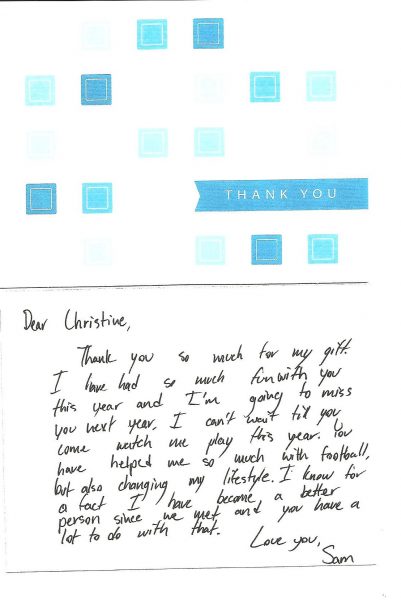 THANK YOU
Dear Christine,
Thank you so much for my gift.
I have had so much fun with you
this year and I'm going to miss
you next year. I can't wait till you
come watch me play this year. You
have helped me so much with football,
but also changing my lifestyle. I know for
a fact I have become a better
person since we met and you have a
lot to do with that.
Love you,
Sam